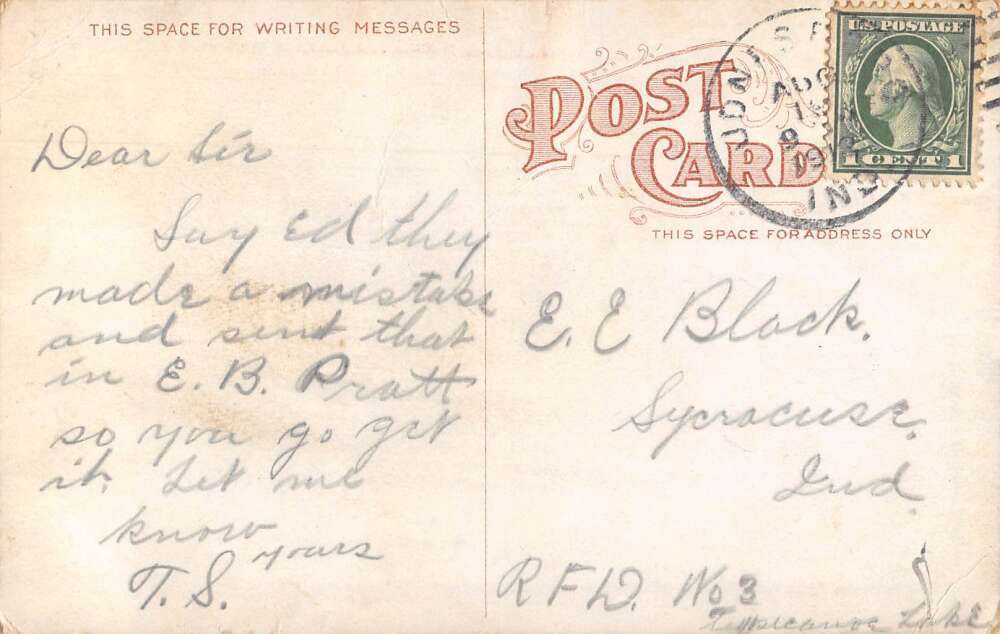 THIS SPACE FOR WRITING MESSAGES
POST CARD
U.S. POSTAGE
1 CENT 1
AUG
IND
THIS SPACE FOR ADDRESS ONLY
Dear Sir
Say Ed they
made a mistake
and sent that
in E. B. Pratt
so you go get
it. Let me
know
yours
T. S.
E. E Black.
Sycracuse,
Ind.
R F D. No 3
Tippicanoe Lake